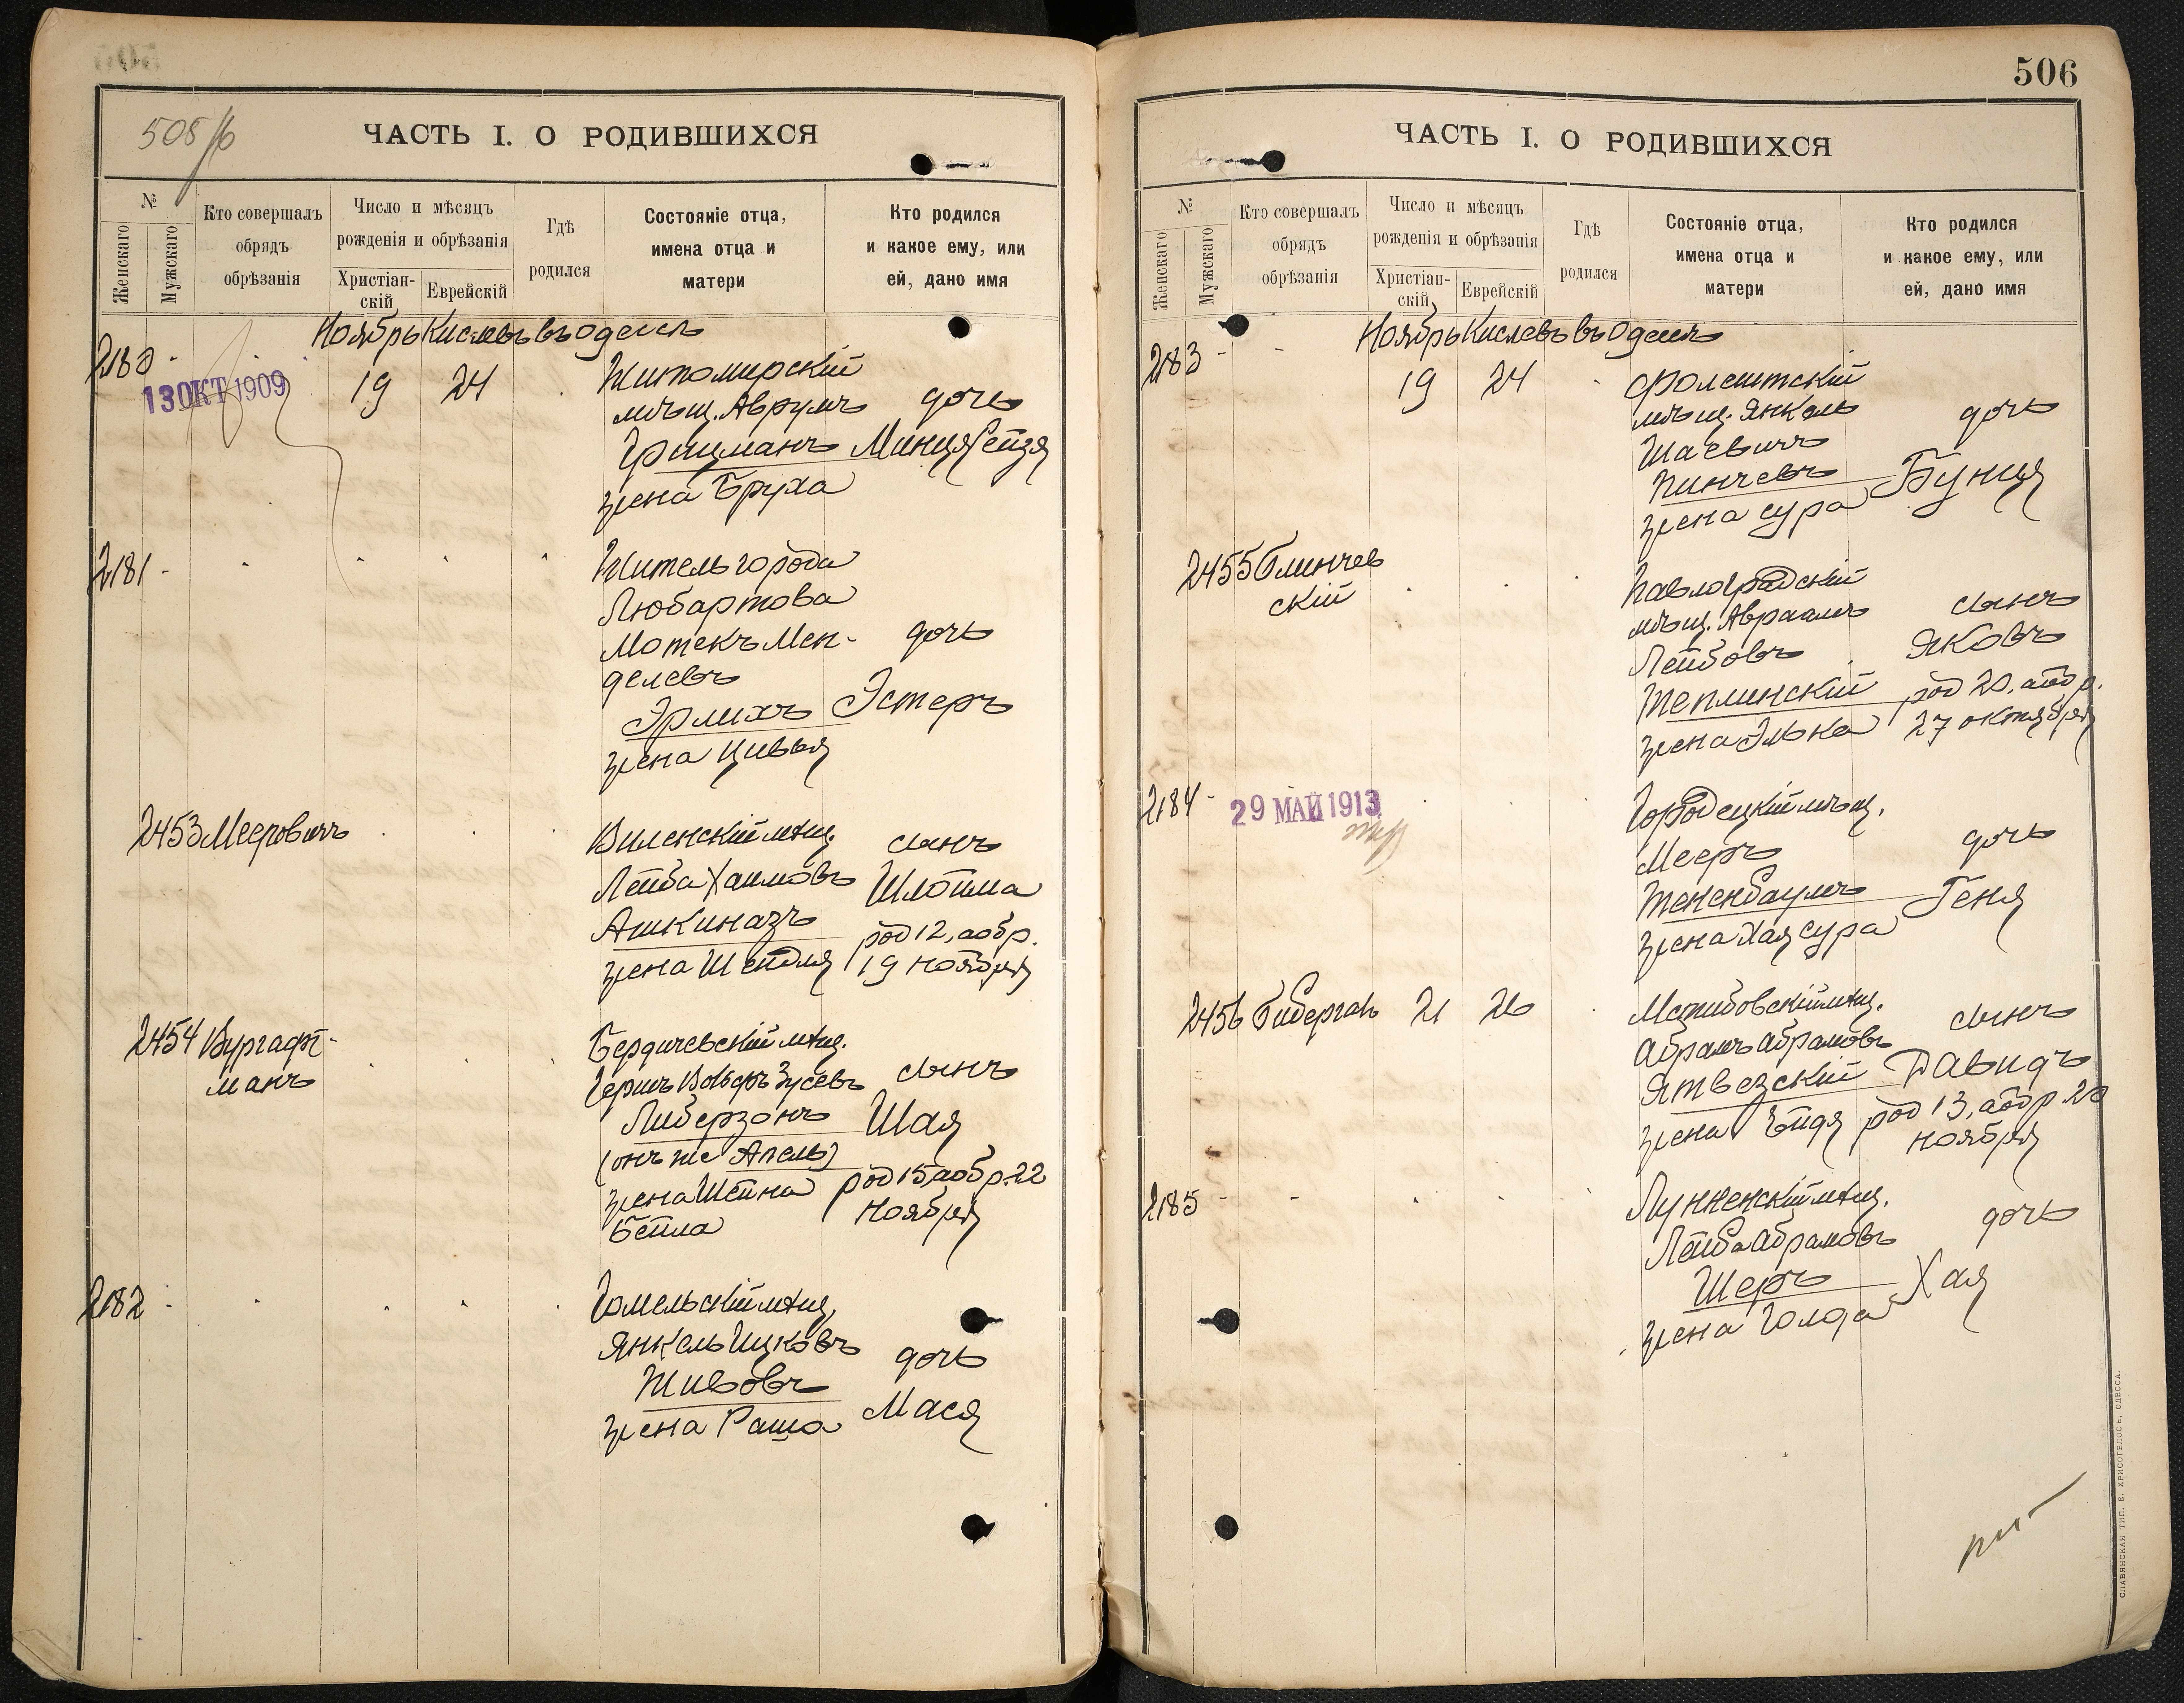 508/б
ЧАСТЬ I. О РОДИВШИХСЯ
№
Женскаго
Мужскаго
Кто совершалъ
обрядъ
обрѣзанія
Число и мѣсяцъ
рожденія и обрѣзанія
Христіан-
скій
Еврейскій
Гдѣ
родился
Состояніе отца,
имена отца и
матери
Кто родился
и какое ему, или
ей, дано имя
Ноябрь Кислевъ въ Одессѣ
2180 -
13 ОКТ 1909
19 24
Житомирскій
мѣщ. Аврумъ дочь
Фришманъ Минця Рейзя
жена Бруха
2181 -
Житель города
Любартова
Мотекъ Мен- дочь
делевъ
Эрлихъ Эстеръ
жена Цивья
2453 Мееровичъ
Виленскій мѣщ. сынъ
Лейба Хаимовъ Шлойма
Ашкиназъ род 12, а обр.
жена Шейдля 19 ноября
2454 Вургафт-
манъ
Бердичевскій мѣщ.
Гершъ Вольфъ Зусевъ сынъ
Либерзонъ Шая
(онъ же Апель)
жена Шейна род 15 а обр. 22
Бейла ноября
2182 -
Гомельскій мѣщ.
Янкель Ицковъ дочь
Живовъ
жена Раша Мася
506
ЧАСТЬ I. О РОДИВШИХСЯ
№
Женскаго
Мужскаго
Кто совершалъ
обрядъ
обрѣзанія
Число и мѣсяцъ
рожденія и обрѣзанія
Христіан-
скій
Еврейскій
Гдѣ
родился
Состояніе отца,
имена отца и
матери
Кто родился
и какое ему, или
ей, дано имя
Ноябрь Кислевъ въ Одессѣ
2183 -
19 24
Фолештскій
мѣщ. Янкель дочь
Шаевичъ
Пинчевъ Бунця
жена Сура
2455 Блинчев
скій
Павлоградскій
мѣщ. Авраамъ сынъ
Лейбовъ Яковъ
Теплинскій род 20, а обр.
жена Элька 27 октября
2184 -
29 МАЙ 1913
Городецкій мѣщ.
Мееръ дочь
Тененбаумъ Геня
жена Хая Сура
2456 Гибергаль 21 26
Мстибовскій мѣщ.
Абрамъ Абрамовъ сынъ
Ятвезскій Давидъ
жена Ейдя род 13, а обр. 20
ноября
2185 -
Лунненскій мѣщ.
Лейба Абрамовъ дочь
Шеръ Хая
жена Голда
СЛАВЯНСКАЯ ТИП. Е. ХРИСОГЕЛОСЪ, ОДЕССА.